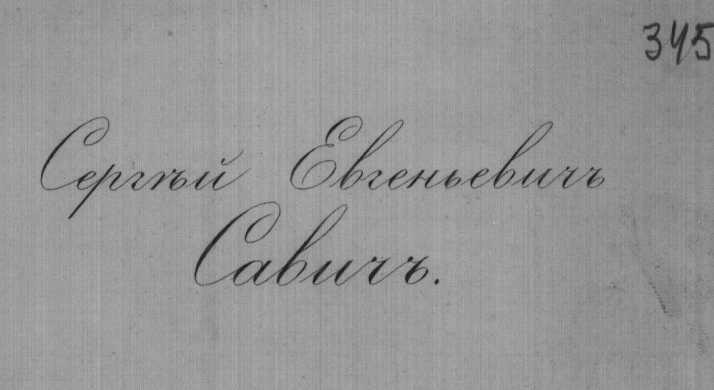 345
Сергѣй Евгеньевичъ
Савичъ.